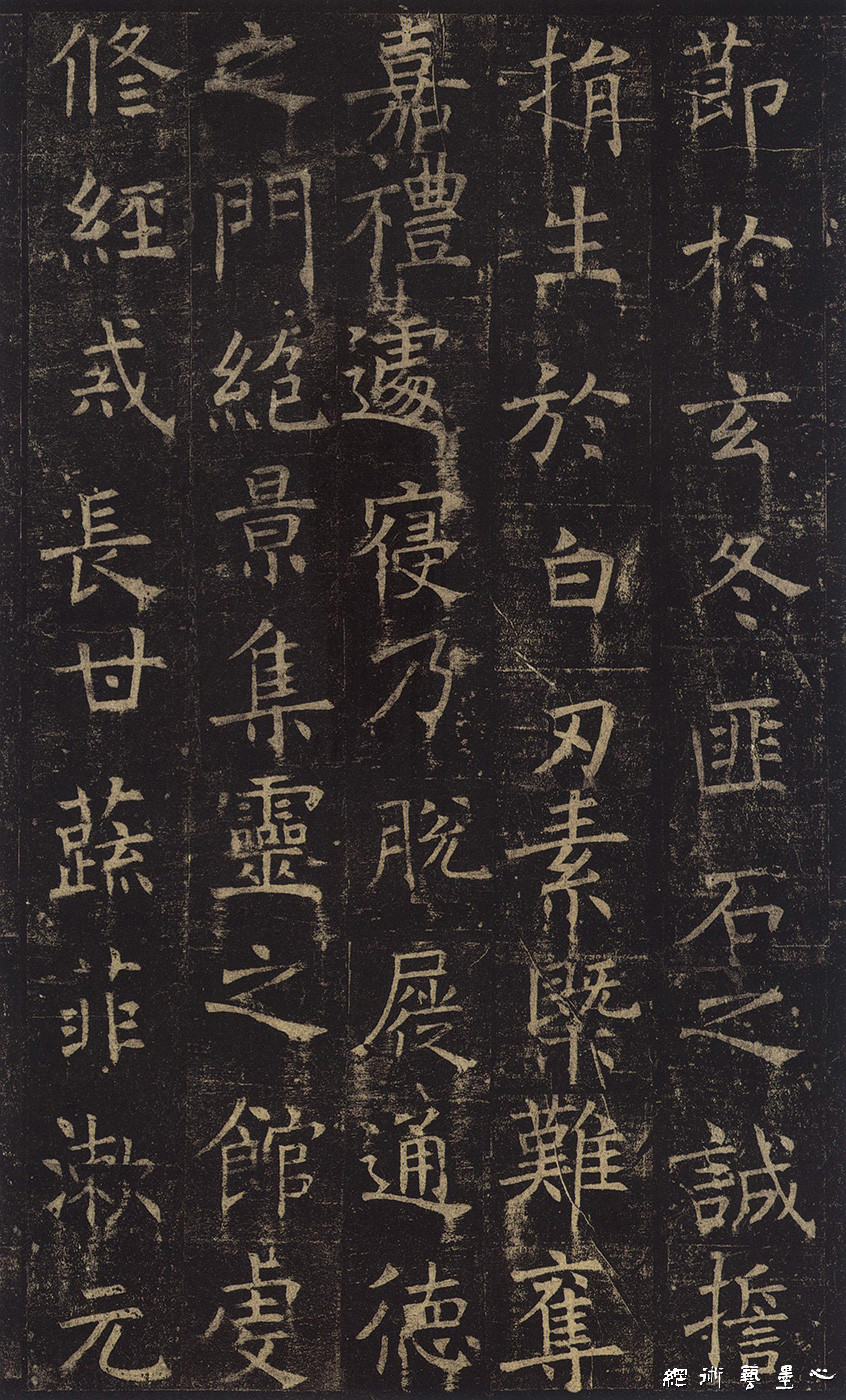 節於玄冬匪石之誠擔
捐生於白刃素槩難奪
嘉禮遽寢乃脫屣通德
之門絕景集靈之館虔
修經戒長甘蔬菲漱元
心墨藝術網